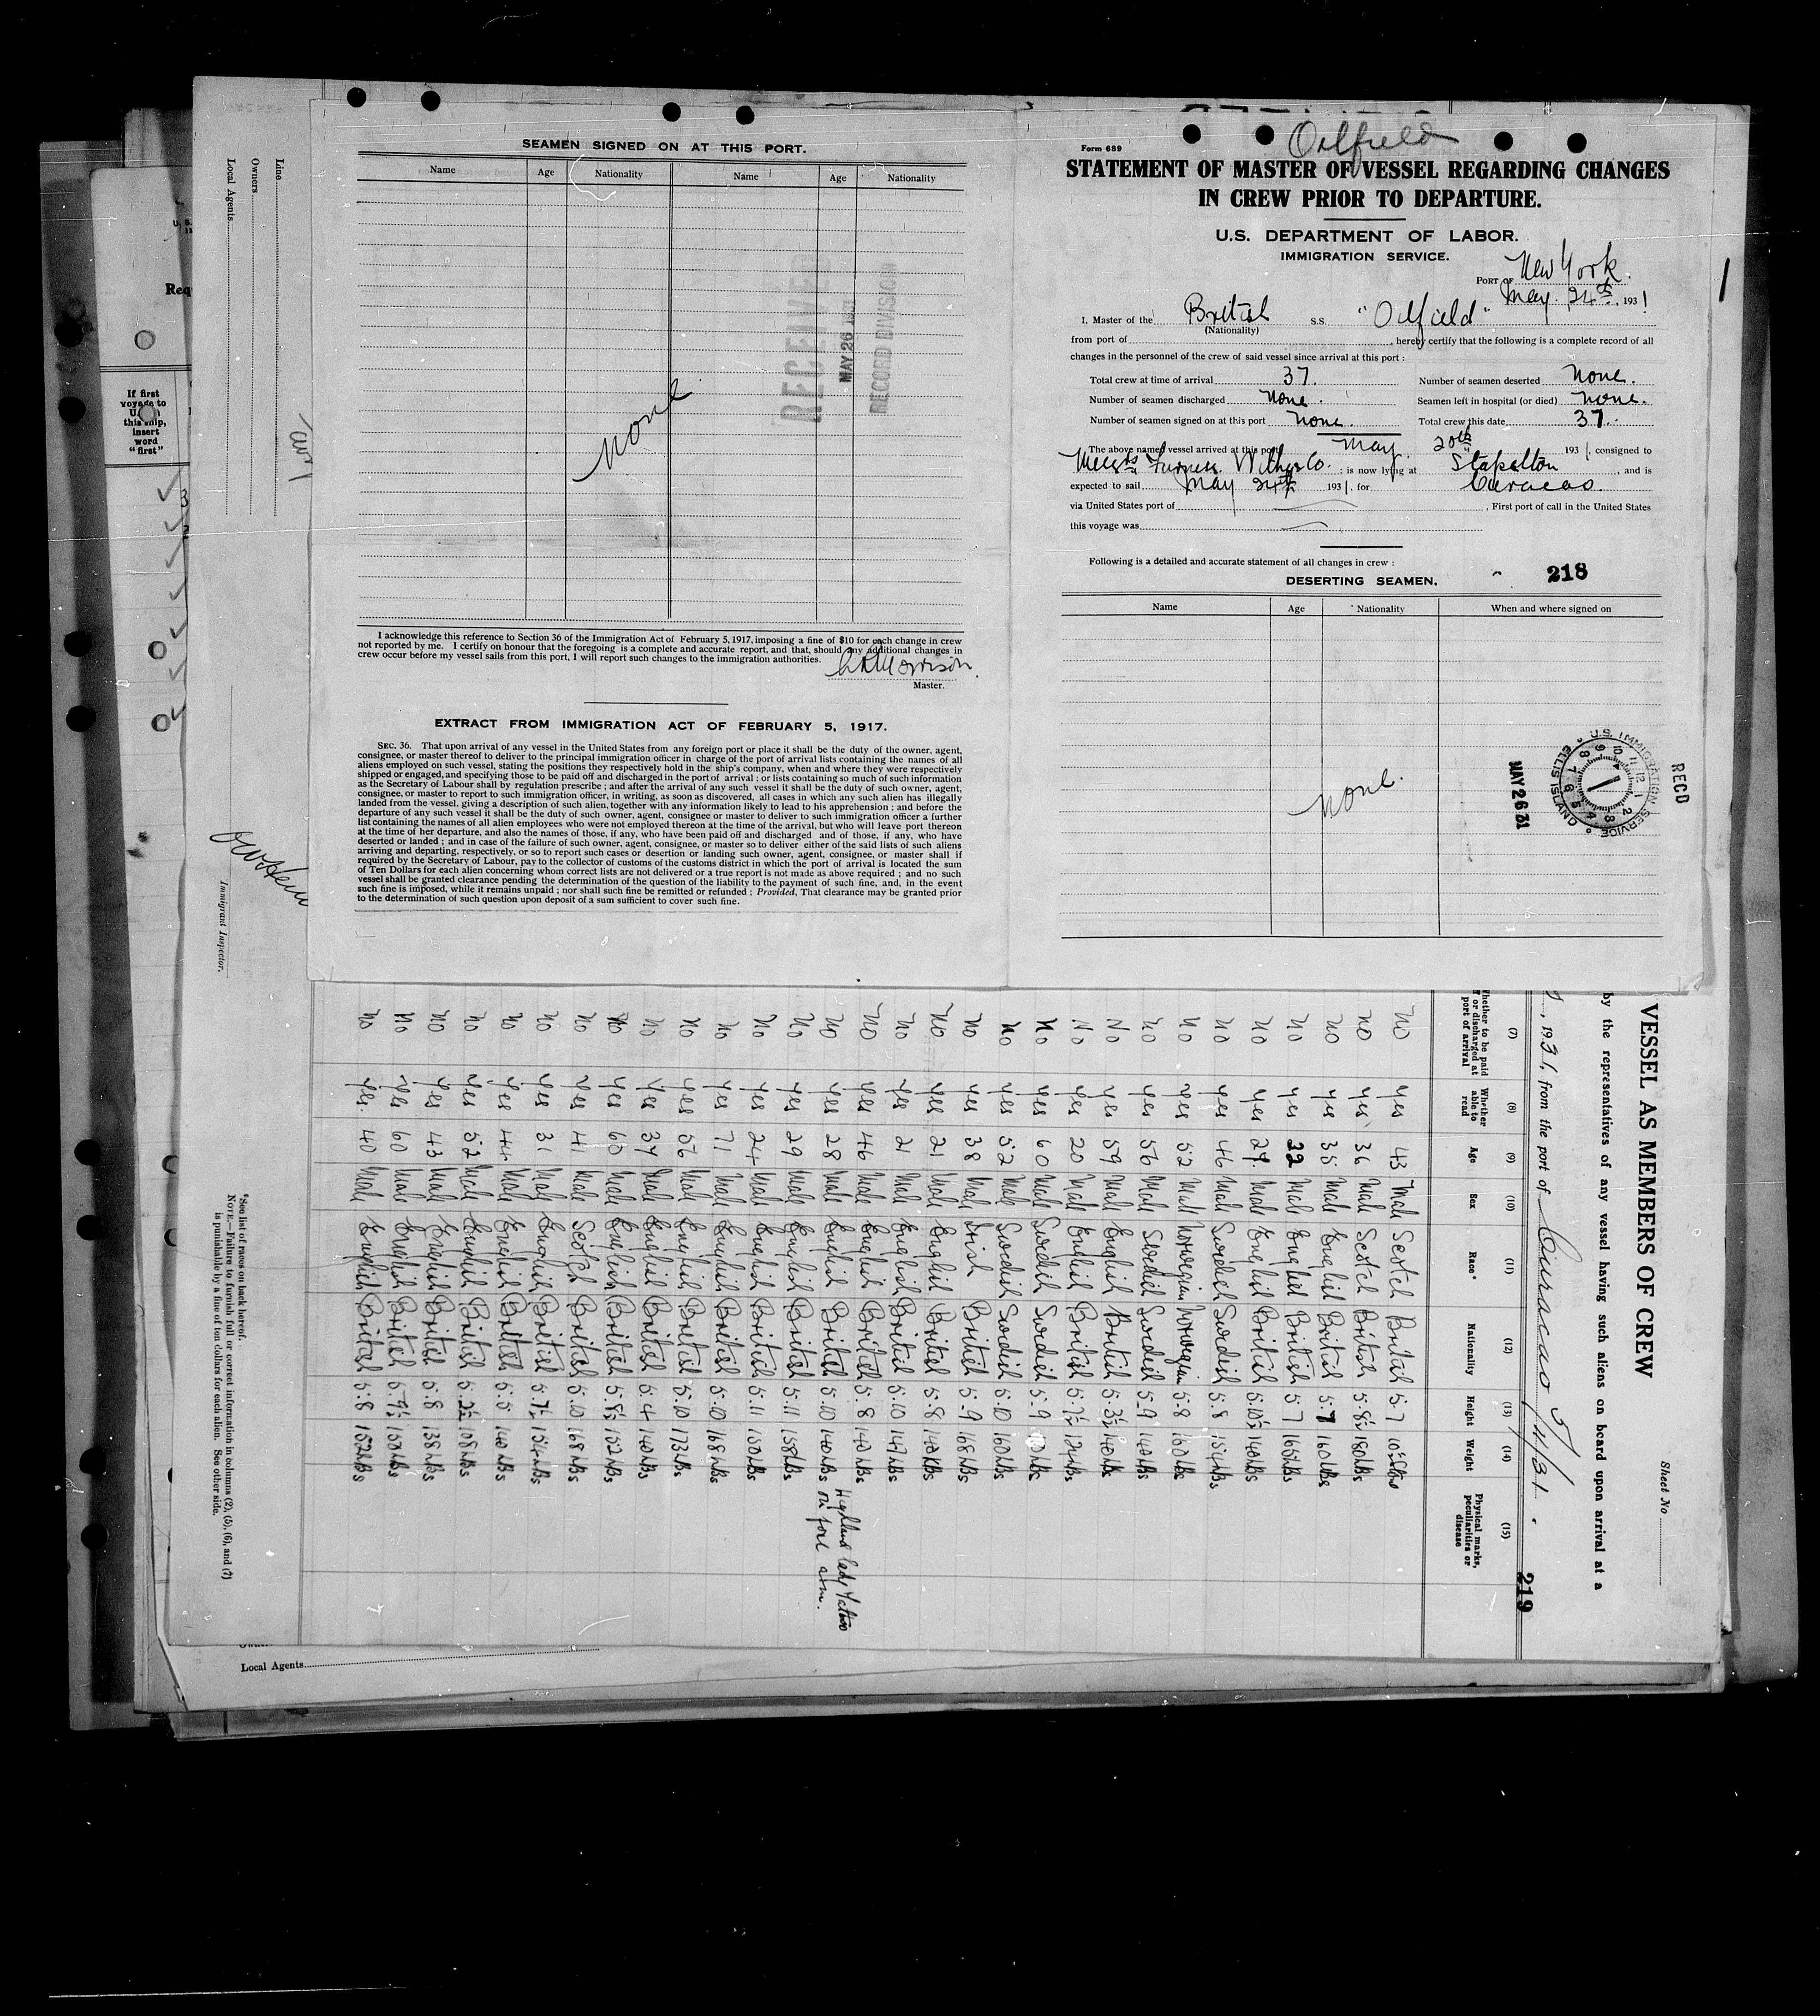 SEAMEN SIGNED ON AT THIS PORT.
Name Age Nationality Name Age Nationality
none
RECEIVED
MAY 26 1931
RECORD DIVISION
I acknowledge this reference to Section 36 of the Immigration Act of February 5, 1917, imposing a fine of $10 for each change in crew
not reported by me. I certify on honour that the foregoing is a complete and accurate report, and that, should any additional changes in
crew occur before my vessel sails from this port, I will report such changes to the immigration authorities.
Morrison
Master.
EXTRACT FROM IMMIGRATION ACT OF FEBRUARY 5, 1917.
SEC. 36. That upon arrival of any vessel in the United States from any foreign port or place it shall be the duty of the owner, agent,
consignee, or master thereof to deliver to the principal immigration officer in charge of the port of arrival lists containing the names of all
aliens employed on such vessel, stating the positions they respectively hold in the ship's company, when and where they were respectively
shipped or engaged, and specifying those to be paid off and discharged in the port of arrival ; or lists containing so much of such information
as the Secretary of Labour shall by regulation prescribe ; and after the arrival of any such vessel it shall be the duty of such owner, agent,
consignee, or master to report to such immigration officer, in writing, as soon as discovered, all cases in which any such alien has illegally
landed from the vessel, giving a description of such alien, together with any information likely to lead to his apprehension ; and before the
departure of any such vessel it shall be the duty of such owner, agent, consignee or master to deliver to such immigration officer a further
list containing the names of all alien employees who were not employed thereon at the time of the arrival, but who will leave port thereon
at the time of her departure, and also the names of those, if any, who have been paid off and discharged and of those, if any, who have
deserted or landed ; and in case of the failure of such owner, agent, consignee, or master so to deliver either of the said lists of such aliens
arriving and departing, respectively, or so to report such cases or desertion or landing such owner, agent, consignee, or master shall if
required by the Secretary of Labour, pay to the collector of customs of the customs district in which the port of arrival is located the sum
of Ten Dollars for each alien concerning whom correct lists are not delivered or a true report is not made as above required ; and no such
vessel shall be granted clearance pending the determination of the question of the liability to the payment of such fine, and, in the event
such fine is imposed, while it remains unpaid ; nor shall such fine be remitted or refunded ; Provided, That clearance may be granted prior
to the determination of such question upon deposit of a sum sufficient to cover such fine.
Oilfield
Form 689
STATEMENT OF MASTER OF VESSEL REGARDING CHANGES
IN CREW PRIOR TO DEPARTURE.
U.S. DEPARTMENT OF LABOR.
IMMIGRATION SERVICE.
PORT OF New York
May 24th, 1931
I, Master of the British S.S. "Oilfield"
(Nationality)
from port of , hereby certify that the following is a complete record of all
changes in the personnel of the crew of said vessel since arrival at this port :
Total crew at time of arrival 37. Number of seamen deserted None.
Number of seamen discharged None. Seamen left in hospital (or died) None.
Number of seamen signed on at this port None. Total crew this date 37.
The above named vessel arrived at this port May 20th 1931, consigned to
Messrs Furness Withy Co. : is now lying at Stapelton, and is
expected to sail May 24th 1931. for Curacao.
via United States port of , First port of call in the United States
this voyage was
Following is a detailed and accurate statement of all changes in crew :
DESERTING SEAMEN. 218
Name Age Nationality When and where signed on
none.
RECD
U.S. IMMIGRATION SERVICE
ELLIS ISLAND
MAY 26 31
VESSEL AS MEMBERS OF CREW
Sheet No
by the representatives of any vessel having such aliens on board upon arrival at a
, 1931, from the port of Curacao 5/11/31.
219
(7) (8) (9) (10) (11) (12) (13) (14) (15)
Whether to be paid off or discharged at port of arrival
Whether able to read
Age
Sex
Race*
Nationality
Height
Weight
Physical marks, peculiarities or disease
No Yes 43 Male Scotch British 5.7
No Yes 36 Male Scotch British 5.8½ 180 Lbs
No Yes 35 Male English British 5.7 160 Lbs
No Yes 32 Male English British 5.7 165 Lbs
No Yes 27 Male English British 5.10½ 140 Lbs
No Yes 46 Male Swedish Swedish 5.8 154 Lbs
No Yes 52 Male Norwegian Norwegian 5.8 160 Lbs
No Yes 56 Male Swedish Swedish 5.9 140 Lbs
No Yes 59 Male English British 5.3½ 140 Lbs
No Yes 20 Male English British 5.7½ 124 Lbs
No Yes 60 Male Swedish Swedish 5.9 Lbs
No Yes 52 Male Swedish Swedish 5.10 160 Lbs
No Yes 38 Male Irish British 5.9 168 Lbs
No Yes 21 Male English British 5.8 140 Lbs
No Yes 21 Male English British 5.10 147 Lbs
No Yes 46 Male English British 5.8 140 Lbs
No Yes 28 Male English British 5.10 140 Lbs Highland lady Tattoo on fore arm.
No Yes 29 Male English British 5.11 158 Lbs
No Yes 24 Male English British 5.11 150 Lbs
No Yes 71 Male English British 5.10 168 Lbs
No Yes 56 Male English British 5.10 173 Lbs
No Yes 37 Male English British 5.4 140 Lbs
No Yes 60 Male English British 5.8½ 152 Lbs
No Yes 41 Male Scotch British 5.10 168 Lbs
No Yes 31 Male English British 5.7½ 154 Lbs
No Yes 44 Male English British 5.5 140 Lbs
No Yes 52 Male English British 5.2½ 108 Lbs
No Yes 43 Male English British 5.8 138 Lbs
No Yes 60 Male English British 5.9½ 150 Lbs
No Yes. 40 Male English British 5.8 152 Lbs
*See list of races on back hereof.
NOTE.—Failure to furnish full or correct information in columns (2), (5), (6), and (7)
is punishable by a fine of ten dollars for each alien. See other side.
Immigrant Inspector.
Line
Owners
Local Agents
If first
voyage to
U.S. in
this ship,
insert
word
"first"
Local Agents